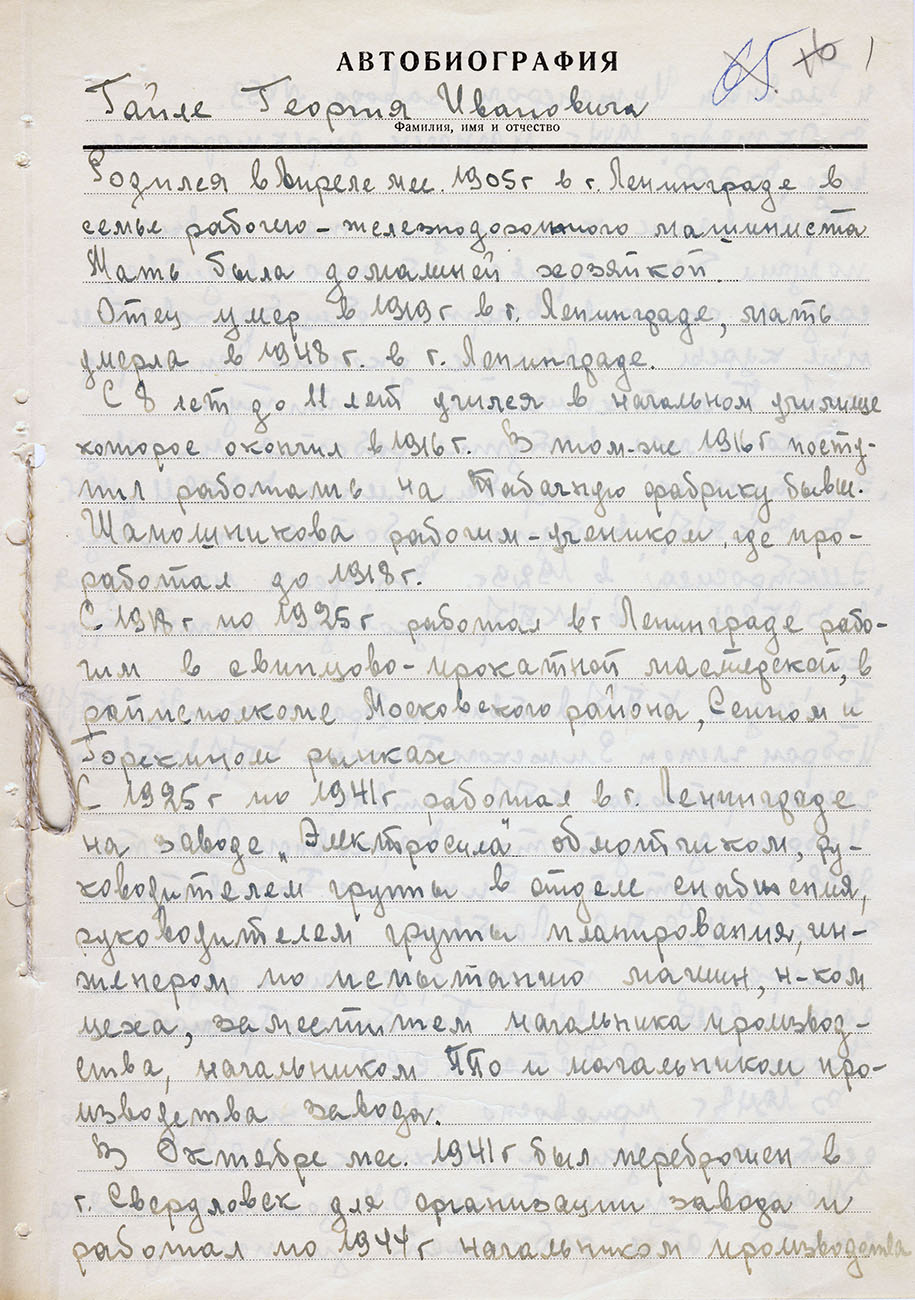 АВТОБИОГРАФИЯ
65. 1
Гайле Георгия Ивановича
Фамилия, имя и отчество
Родился в Апреле мес. 1905г в г. Ленинграде в
семье рабочего-железнодорожного машиниста
Мать была домашней хозяйкой.
Отец умер в 1919г в г. Ленинграде, мать
умерла в 1948г. в г. Ленинграде.
С 8 лет до 11 лет учился в начальном училище
которое окончил в 1916г. В том-же 1916г посту-
пил работать на Табачную фабрику бывш.
Шапошникова рабочим-учеником, где про-
работал до 1918г.
С 1918г по 1925г работал в г Ленинграде рабо-
чим в свинцово-прокатной мастерской, в
райисполкоме Московского района, Сенном и
Горскином рынках
С 1925г по 1941г работал в г. Ленинграде
на заводе „Электросила" обмотчиком, ру-
ководителем группы в отделе снабжения,
руководителем группы планирования, ин-
женером по испытанию машин, н-ком
цеха, заместителем начальника производ-
ства, начальником ППО и начальником про-
изводства завода.
В Октябре мес. 1941г был переброшен в
г. Свердловск для организации завода и
работал по 1944г начальником производства